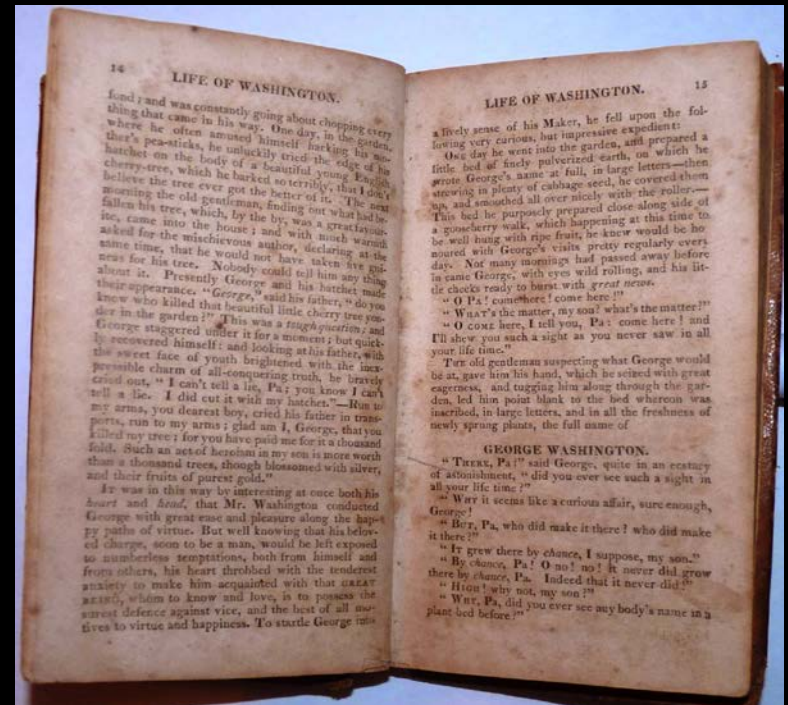 14
LIFE OF WASHINGTON.
fond; and was constantly going about chopping every
thing that came in his way. One day, in the garden,
where he often amused himself hacking his mo-
ther's pea-sticks, he unluckily tried the edge of his
hatchet on the body of a beautiful young English
cherry-tree, which he barked so terribly, that I don't
believe the tree ever got the better of it. The next
morning the old gentleman, finding out what had be-
fallen his tree, which, by the by, was a great favour-
ite, came into the house; and with much warmth
asked for the mischievous author, declaring at the
same time, that he would not have taken five gui-
neas for his tree. Nobody could tell him any thing
about it. Presently George and his hatchet made
their appearance. "George," said his father, "do you
know who killed that beautiful little cherry tree yon-
der in the garden?" This was a tough question; and
George staggered under it for a moment; but quick-
ly recovered himself: and looking at his father, with
the sweet face of youth brightened with the inex-
pressible charm of all-conquering truth, he bravely
cried out, "I can't tell a lie, Pa; you know I can't
tell a lie. I did cut it with my hatchet."—Run to
my arms, you dearest boy, cried his father in trans-
ports, run to my arms; glad am I, George, that you
killed my tree; for you have paid me for it a thousand
fold. Such an act of heroism in my son is more worth
than a thousand trees, though blossomed with silver,
and their fruits of purest gold."
IT was in this way by interesting at once both his
heart and head, that Mr. Washington conducted
George with great ease and pleasure along the hap-
py paths of virtue. But well knowing that his belov-
ed charge, soon to be a man, would be left exposed
to numberless temptations, both from himself and
from others, his heart throbbed with the tenderest
anxiety to make him acquainted with that GREAT
BEING, whom to know and love, is to possess the
surest defence against vice, and the best of all mo-
tives to virtue and happiness. To startle George into
LIFE OF WASHINGTON.
15
a lively sense of his Maker, he fell upon the fol-
lowing very curious, but impressive expedient:
ONE day he went into the garden, and prepared a
little bed of finely pulverized earth, on which he
wrote George's name at full, in large letters—then
strewing in plenty of cabbage seed, he covered them
up, and smoothed all over nicely with the roller.—
This bed he purposely prepared close along side of
a gooseberry walk, which happening at this time to
be well hung with ripe fruit, he knew would be ho-
noured with George's visits pretty regularly every
day. Not many mornings had passed away before
in came George, with eyes wild rolling, and his lit-
tle cheeks ready to burst with great news.
"O Pa! come here! come here!"
"WHAT's the matter, my son? what's the matter?"
"O COME here, I tell you, Pa: come here! and
I'll shew you such a sight as you never saw in all
your life time."
THE old gentleman suspecting what George would
be at, gave him his hand, which he seized with great
eagerness, and tugging him along through the gar-
den, led him point blank to the bed whereon was
inscribed, in large letters, and in all the freshness of
newly sprung plants, the full name of
GEORGE WASHINGTON.
"THERE, Pa!" said George, quite in an ecstacy
of astonishment, "did you ever see such a sight in
all your life time?"
"WHY it seems like a curious affair, sure enough,
George!
"BUT, Pa, who did make it there! who did make
it there?"
"IT grew there by chance, I suppose, my son."
"By chance, Pa! O no! no! it never did grow
there by chance, Pa. Indeed that it never did!"
"HIGH! why not, my son?"
"WHY, Pa, did you ever see any body's name in a
plant bed before?"